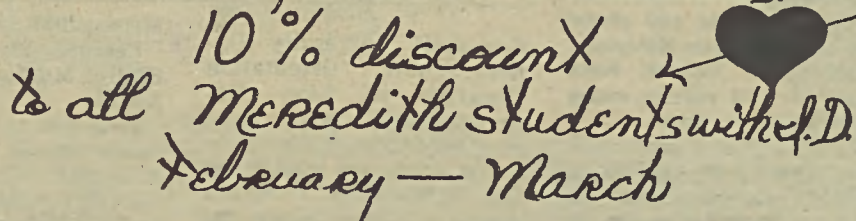 10% discount
to all Meredith students with I.D.
February — March